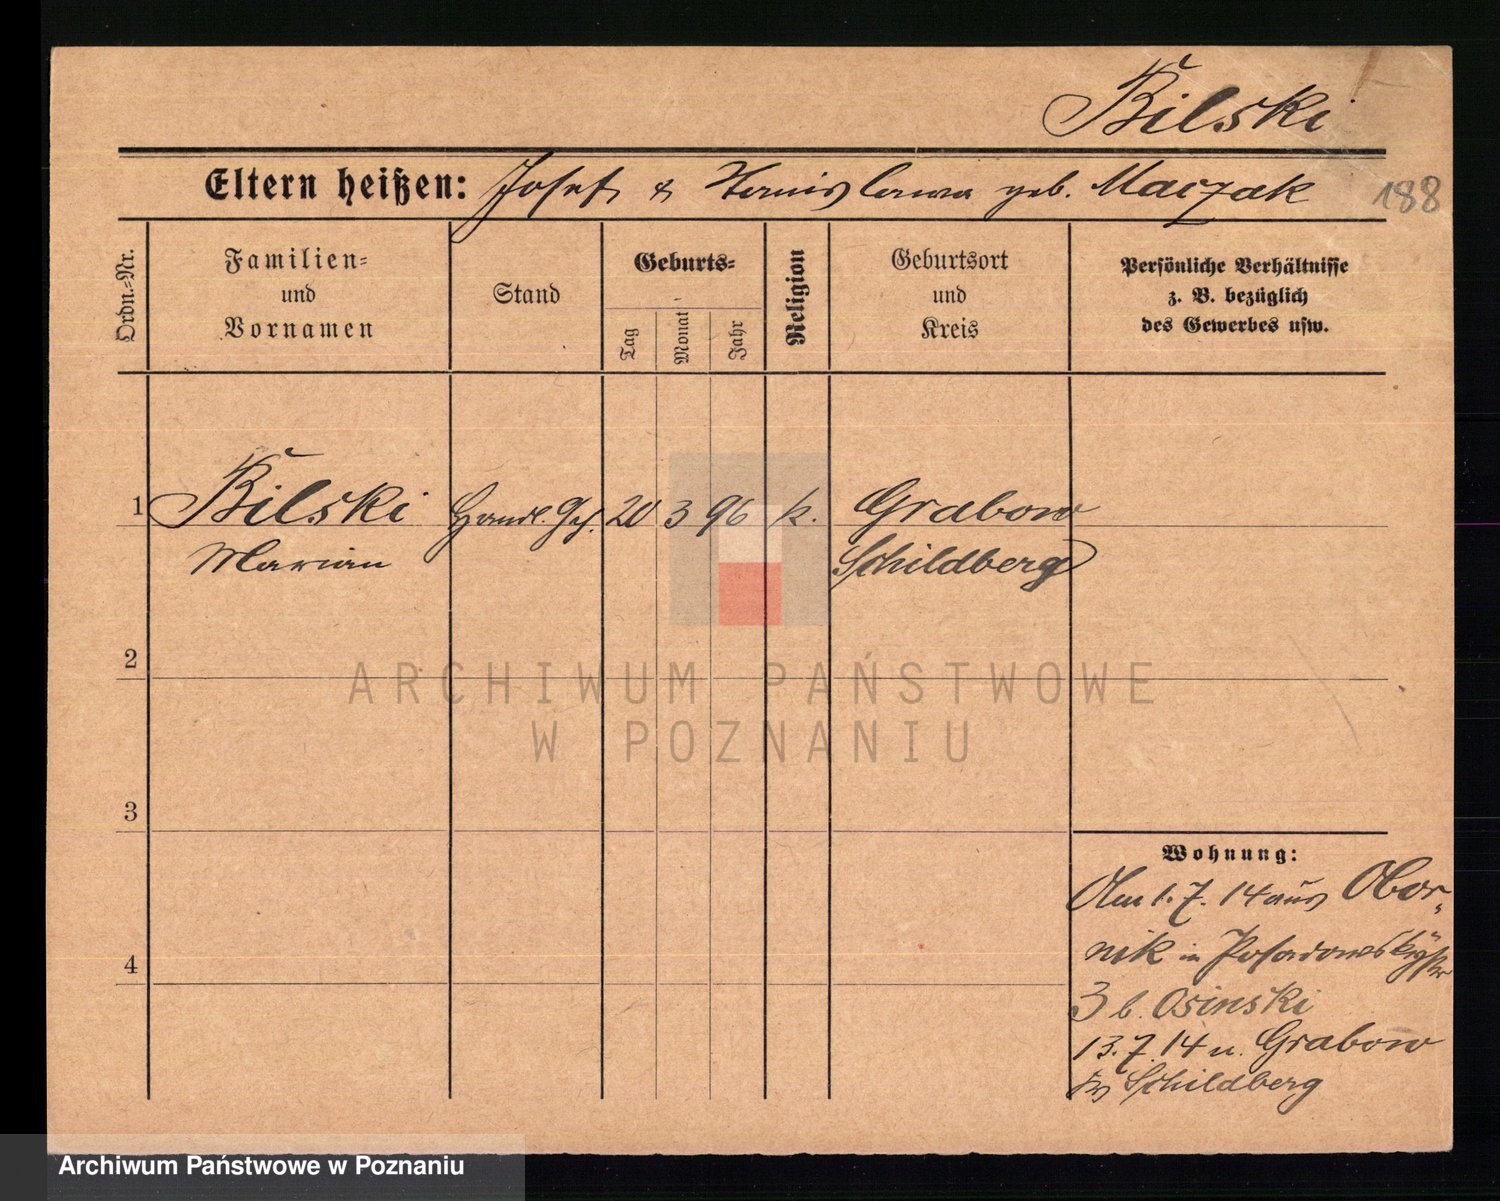 Bilski
Eltern heißen: Josef & Stanislawa geb. Maczak
188
Ordn.-Nr.
Familien-
und
Vornamen
Stand
Geburts-
Tag
Monat
Jahr
Religion
Geburtsort
und
Kreis
Persönliche Verhältnisse
z. B. bezüglich
des Gewerbes usw.
1 Bilski Handl. Geh. 20 3 96 k. Grabow
Marian Schildberg
2
ARCHIWUM PAŃSTWOWE
W POZNANIU
3
Wohnung:
Am 1.7.14 aus Obor-
nik in Posadowskystr
4
3 b. Osinski
13.7.14 n. Grabow
Kr Schildberg
Archiwum Państwowe w Poznaniu